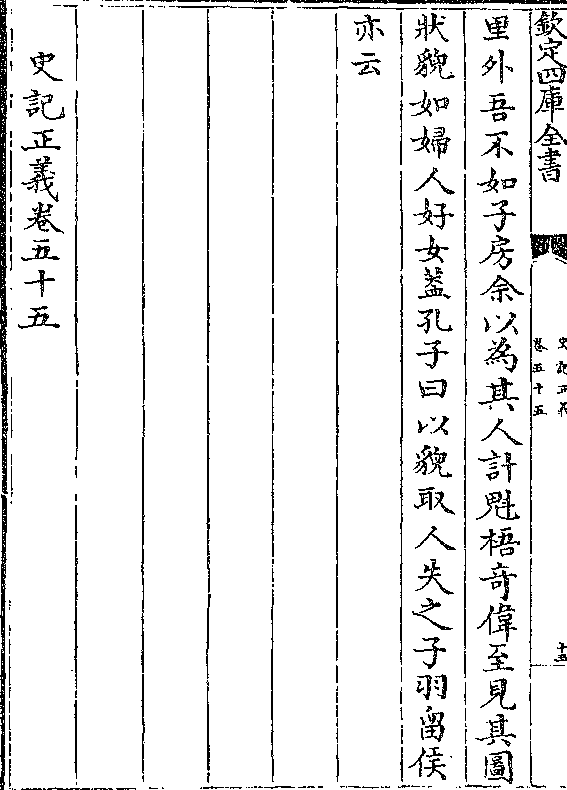 欽定四庫全書
史記正義
卷五十五
十五
里外吾不如子房余以為其人計魁梧奇偉至見其圖
狀貌如婦人好女葢孔子曰以貌取人失之子羽留侯
亦云
史記正義卷五十五